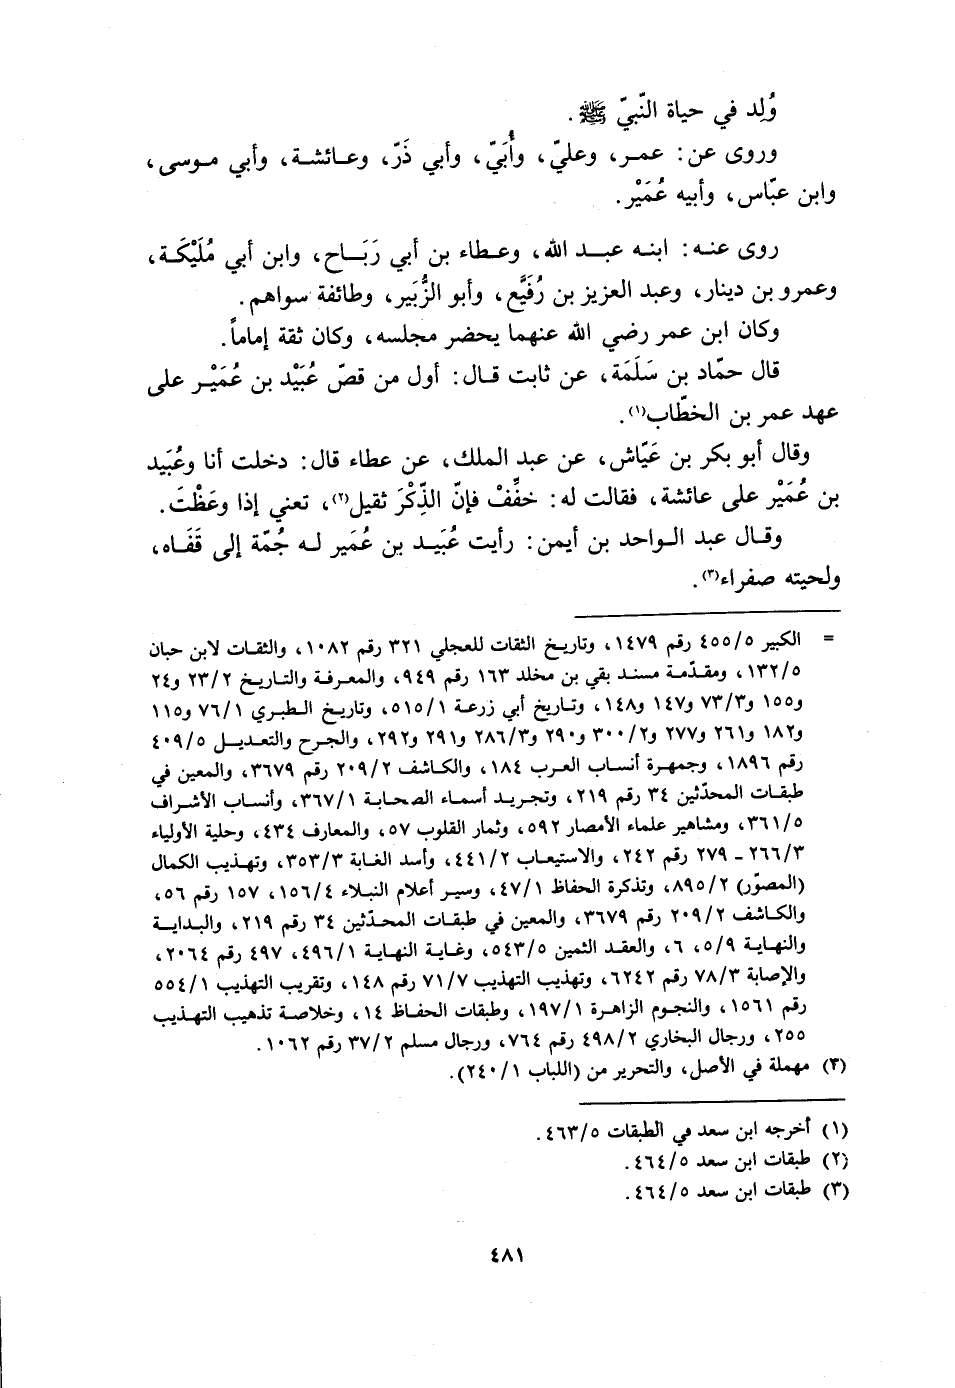 وُلِد في حياة النّبيّ ﷺ.
وروى عن: عمر، وعليّ، وأُبَيّ، وأبي ذَرّ، وعائشة، وأبي موسى،
وابن عبّاس، وأبيه عُمَيْر.
روى عنه: ابنه عبد الله، وعطاء بن أبي رَبَاح، وابن أبي مُلَيْكَة،
وعمرو بن دينار، وعبد العزيز بن رُفَيَّع، وأبو الزُّبَير، وطائفة سواهم.
وكان ابن عمر رضي الله عنهما يحضر مجلسه، وكان ثقة إماماً.
قال حمّاد بن سَلَمَة، عن ثابت قال: أول من قصّ عُبَيْد بن عُمَيْر على
عهد عمر بن الخطّاب(١).
وقال أبو بكر بن عَيّاش، عن عبد الملك، عن عطاء قال: دخلت أنا وعُبَيد
بن عُمَيْر على عائشة، فقالت له: خفِّفْ فإنّ الذِّكْرَ ثقيل(٢)، تعني إذا وعَظْتَ.
وقال عبد الواحد بن أيمن: رأيت عُبَيد بن عُمَير له جُمّة إلى قَفَاه،
ولحيته صفراء(٣).
= الكبير ٤٥٥/٥ رقم ١٤٧٩، وتاريخ الثقات للعجلي ٣٢١ رقم ١٠٨٢، والثقات لابن حبان
١٣٢/٥، ومقدّمة مسند بقي بن مخلد ١٦٣ رقم ٩٤٩، والمعرفة والتاريخ ٢٣/٢ و٢٤
و١٥٥ و٧٣/٣ و١٤٧ و١٤٨، وتاريخ أبي زرعة ٥١٥/١، وتاريخ الطبري ٧٦/١ و١١٥
و١٨٢ و٢٦١ و٢٧٧ و٣٠٠/٢ و٢٩٠ و٢٨٦/٣ و٢٩١ و٢٩٢، والجرح والتعديل ٤٠٩/٥
رقم ١٨٩٦، وجمهرة أنساب العرب ١٨٤، والكاشف ٢٠٩/٢ رقم ٣٦٧٩، والمعين في
طبقات المحدّثين ٣٤ رقم ٢١٩، وتجريد أسماء الصحابة ٣٦٧/١، وأنساب الأشراف
٣٦١/٥، ومشاهير علماء الأمصار ٥٩٢، وثمار القلوب ٥٧، والمعارف ٤٣٤، وحلية الأولياء
٢٦٦/٣ ـ ٢٧٩ رقم ٢٤٢، والاستيعاب ٤٤١/٢، وأسد الغابة ٣٥٣/٣، وتهذيب الكمال
(المصوّر) ٨٩٥/٢، وتذكرة الحفاظ ٤٧/١، وسير أعلام النبلاء ١٥٦/٤، ١٥٧ رقم ٥٦،
والكاشف ٢٠٩/٢ رقم ٣٦٧٩، والمعين في طبقات المحدّثين ٣٤ رقم ٢١٩، والبداية
والنهاية ٥/٩، ٦، والعقد الثمين ٥٤٣/٥، وغاية النهاية ٤٩٦/١، ٤٩٧ رقم ٢٠٦٤،
والإصابة ٧٨/٣ رقم ٦٢٤٢، وتهذيب التهذيب ٧١/٧ رقم ١٤٨، وتقريب التهذيب ٥٥٤/١
رقم ١٥٦١، والنجوم الزاهرة ١٩٧/١، وطبقات الحفاظ ١٤، وخلاصة تذهيب التهذيب
٢٥٥، ورجال البخاري ٤٩٨/٢ رقم ٧٦٤، ورجال مسلم ٣٧/٢ رقم ١٠٦٢.
(٣) مهملة في الأصل، والتحرير من (اللباب ٢٤٠/١).
(١) أخرجه ابن سعد في الطبقات ٤٦٣/٥.
(٢) طبقات ابن سعد ٤٦٤/٥.
(٣) طبقات ابن سعد ٤٦٤/٥.
٤٨١